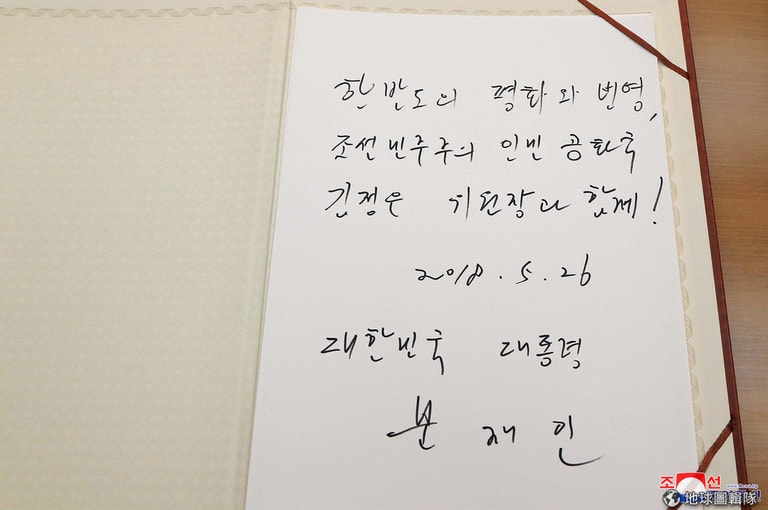 한반도의 평화와 번영,
조선민주주의 인민 공화국
김정은 위원장과 함께!
2018. 5. 26
대한민국 대통령
문 재 인
조선
地球圖輯隊